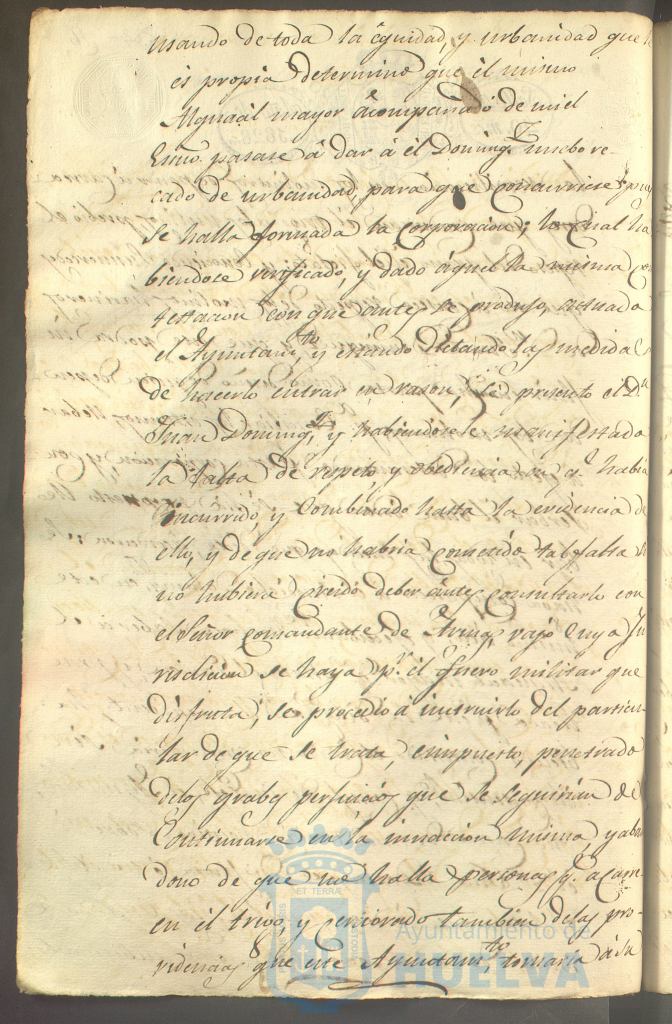 usando de toda la equidad, y urbanidad que le
es propia determinó que el mismo
Alguacil mayor acompañado de mi el
Esno. pasase á dar á el Domingz. nuebo re-
cado de urbanidad, para que concurriese pues
se halla formada la corporacion; lo cual ha
biendose verificado, y dado áquel la misma con
testacion con que antes se produjo, actuado
el Ayuntamto. y estando tratando las medidas
de hacerlo entrar en rason, se presento el Dn.
Juan Domingz. y habiendosele manifestado
la falta de respeto y obediencia en q. habia
incurrido, y combencido hasta la evidencia de
ello, y de que no habria cometido tal falta si
no hubiera creido deber antes consultarlo con
el Señor comandante de Armas, vajo cuya Ju
risdicion se haya pr. el fuero militar que
disfruta, se procedio á instruirlo del particu-
lar de que se trata, é impuesto, penetrado
delos grabes perjuicios que se seguirian de
Continuarse en la inaccion misma, y aban
dono de que no halla personas q. acam
en el trigo, y cerciorado tambien delas pro-
videncias que este Ayuntamto. tomaria á su
Ayuntamiento de
HUELVA